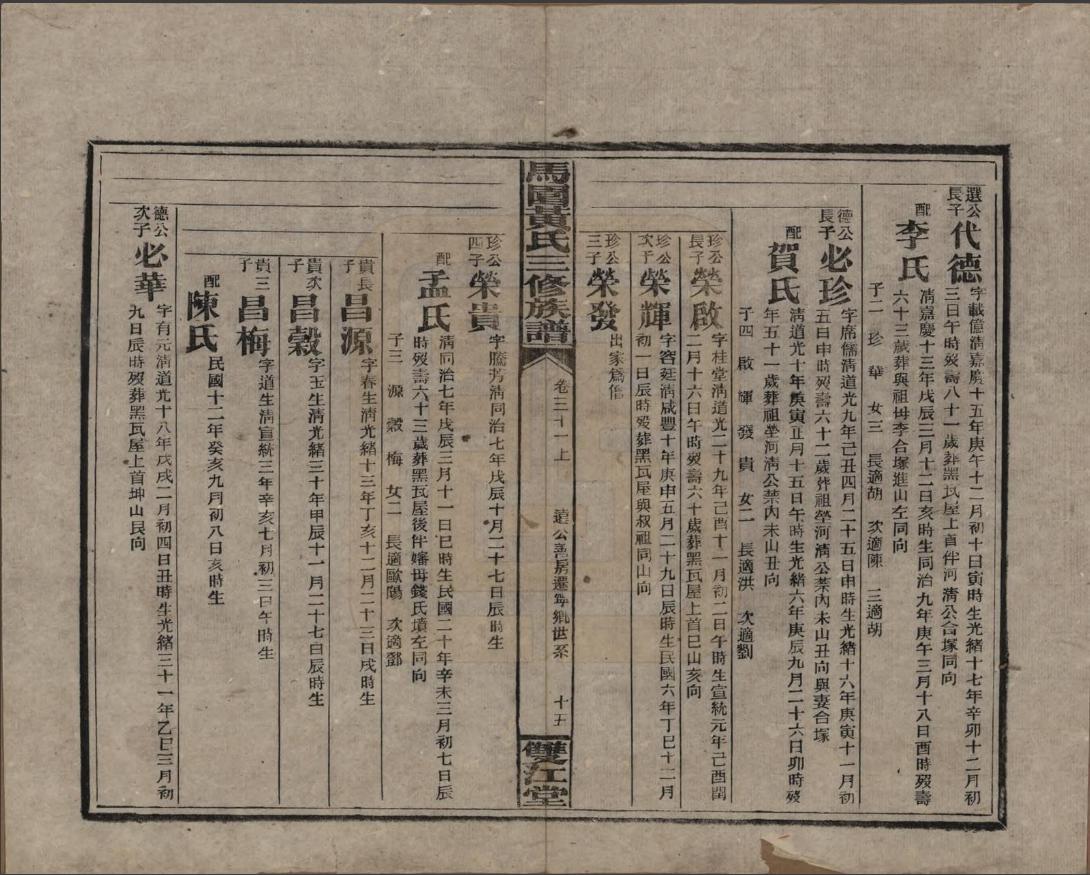 選公
長子
代德
字載億清嘉慶十五年庚午十二月初十日寅時生光緒十七年辛卯十二月初
三日午時歿壽八十一歲葬黑瓦屋上首伴河清公合塚同向
配
李氏
清嘉慶十三年戊辰三月十二日亥時生同治九年庚午三月十八日酉時歿壽
六十三歲葬與祖母李合塚進山左同向
子二 珍 華 女三 長適胡 次適陳 三適胡
德公
長子
必珍
字席儒清道光九年己丑四月二十五日申時生光緒十六年庚寅十一月初
五日申時歿壽六十二歲葬祖塋河清公塋內未山丑向與妻合塚
配
賀氏
清道光十年庚寅正月十五日午時生光緒六年庚辰九月二十六日卯時歿
年五十一歲葬祖塋河清公塋內未山丑向
子四 啟 輝 發 貴 女二 長適洪 次適劉
珍公
長子
榮啟
字桂堂清道光二十九年己酉十一月初二日午時生宣統元年己酉閏
二月十六日午時歿壽六十歲葬黑瓦屋上首巳山亥向
珍公
次子
榮輝
字容廷清咸豐十年庚申五月二十九日辰時生民國六年丁巳十二月
初一日辰時歿葬黑瓦屋與叔祖同山向
珍公
三子
榮發
出家為僧
馬園黃氏三修族譜
卷三十一上
遠公善房遷寧鄉世系
十五
雙江堂
珍公
四子
榮貴
字騰芳清同治七年戊辰十月二十七日辰時生
配
孟氏
清同治七年戊辰三月十一日巳時生民國二十年辛未三月初七日辰
時歿壽六十三歲葬黑瓦屋後伴嬸母錢氏墳左同向
子三 源 穀 梅 女二 長適歐陽 次適鄧
貴長
子
昌源
字春生清光緒十三年丁亥十二月二十三日戌時生
貴次
子
昌穀
字玉生清光緒三十年甲辰十一月二十七日辰時生
貴三
子
昌梅
字道生清宣統三年辛亥七月初三日午時生
配
陳氏
民國十二年癸亥九月初八日亥時生
德公
次子
必華
字有元清道光十八年戊戌二月初四日丑時生光緒三十一年乙巳三月初
九日辰時歿葬黑瓦屋上首坤山艮向